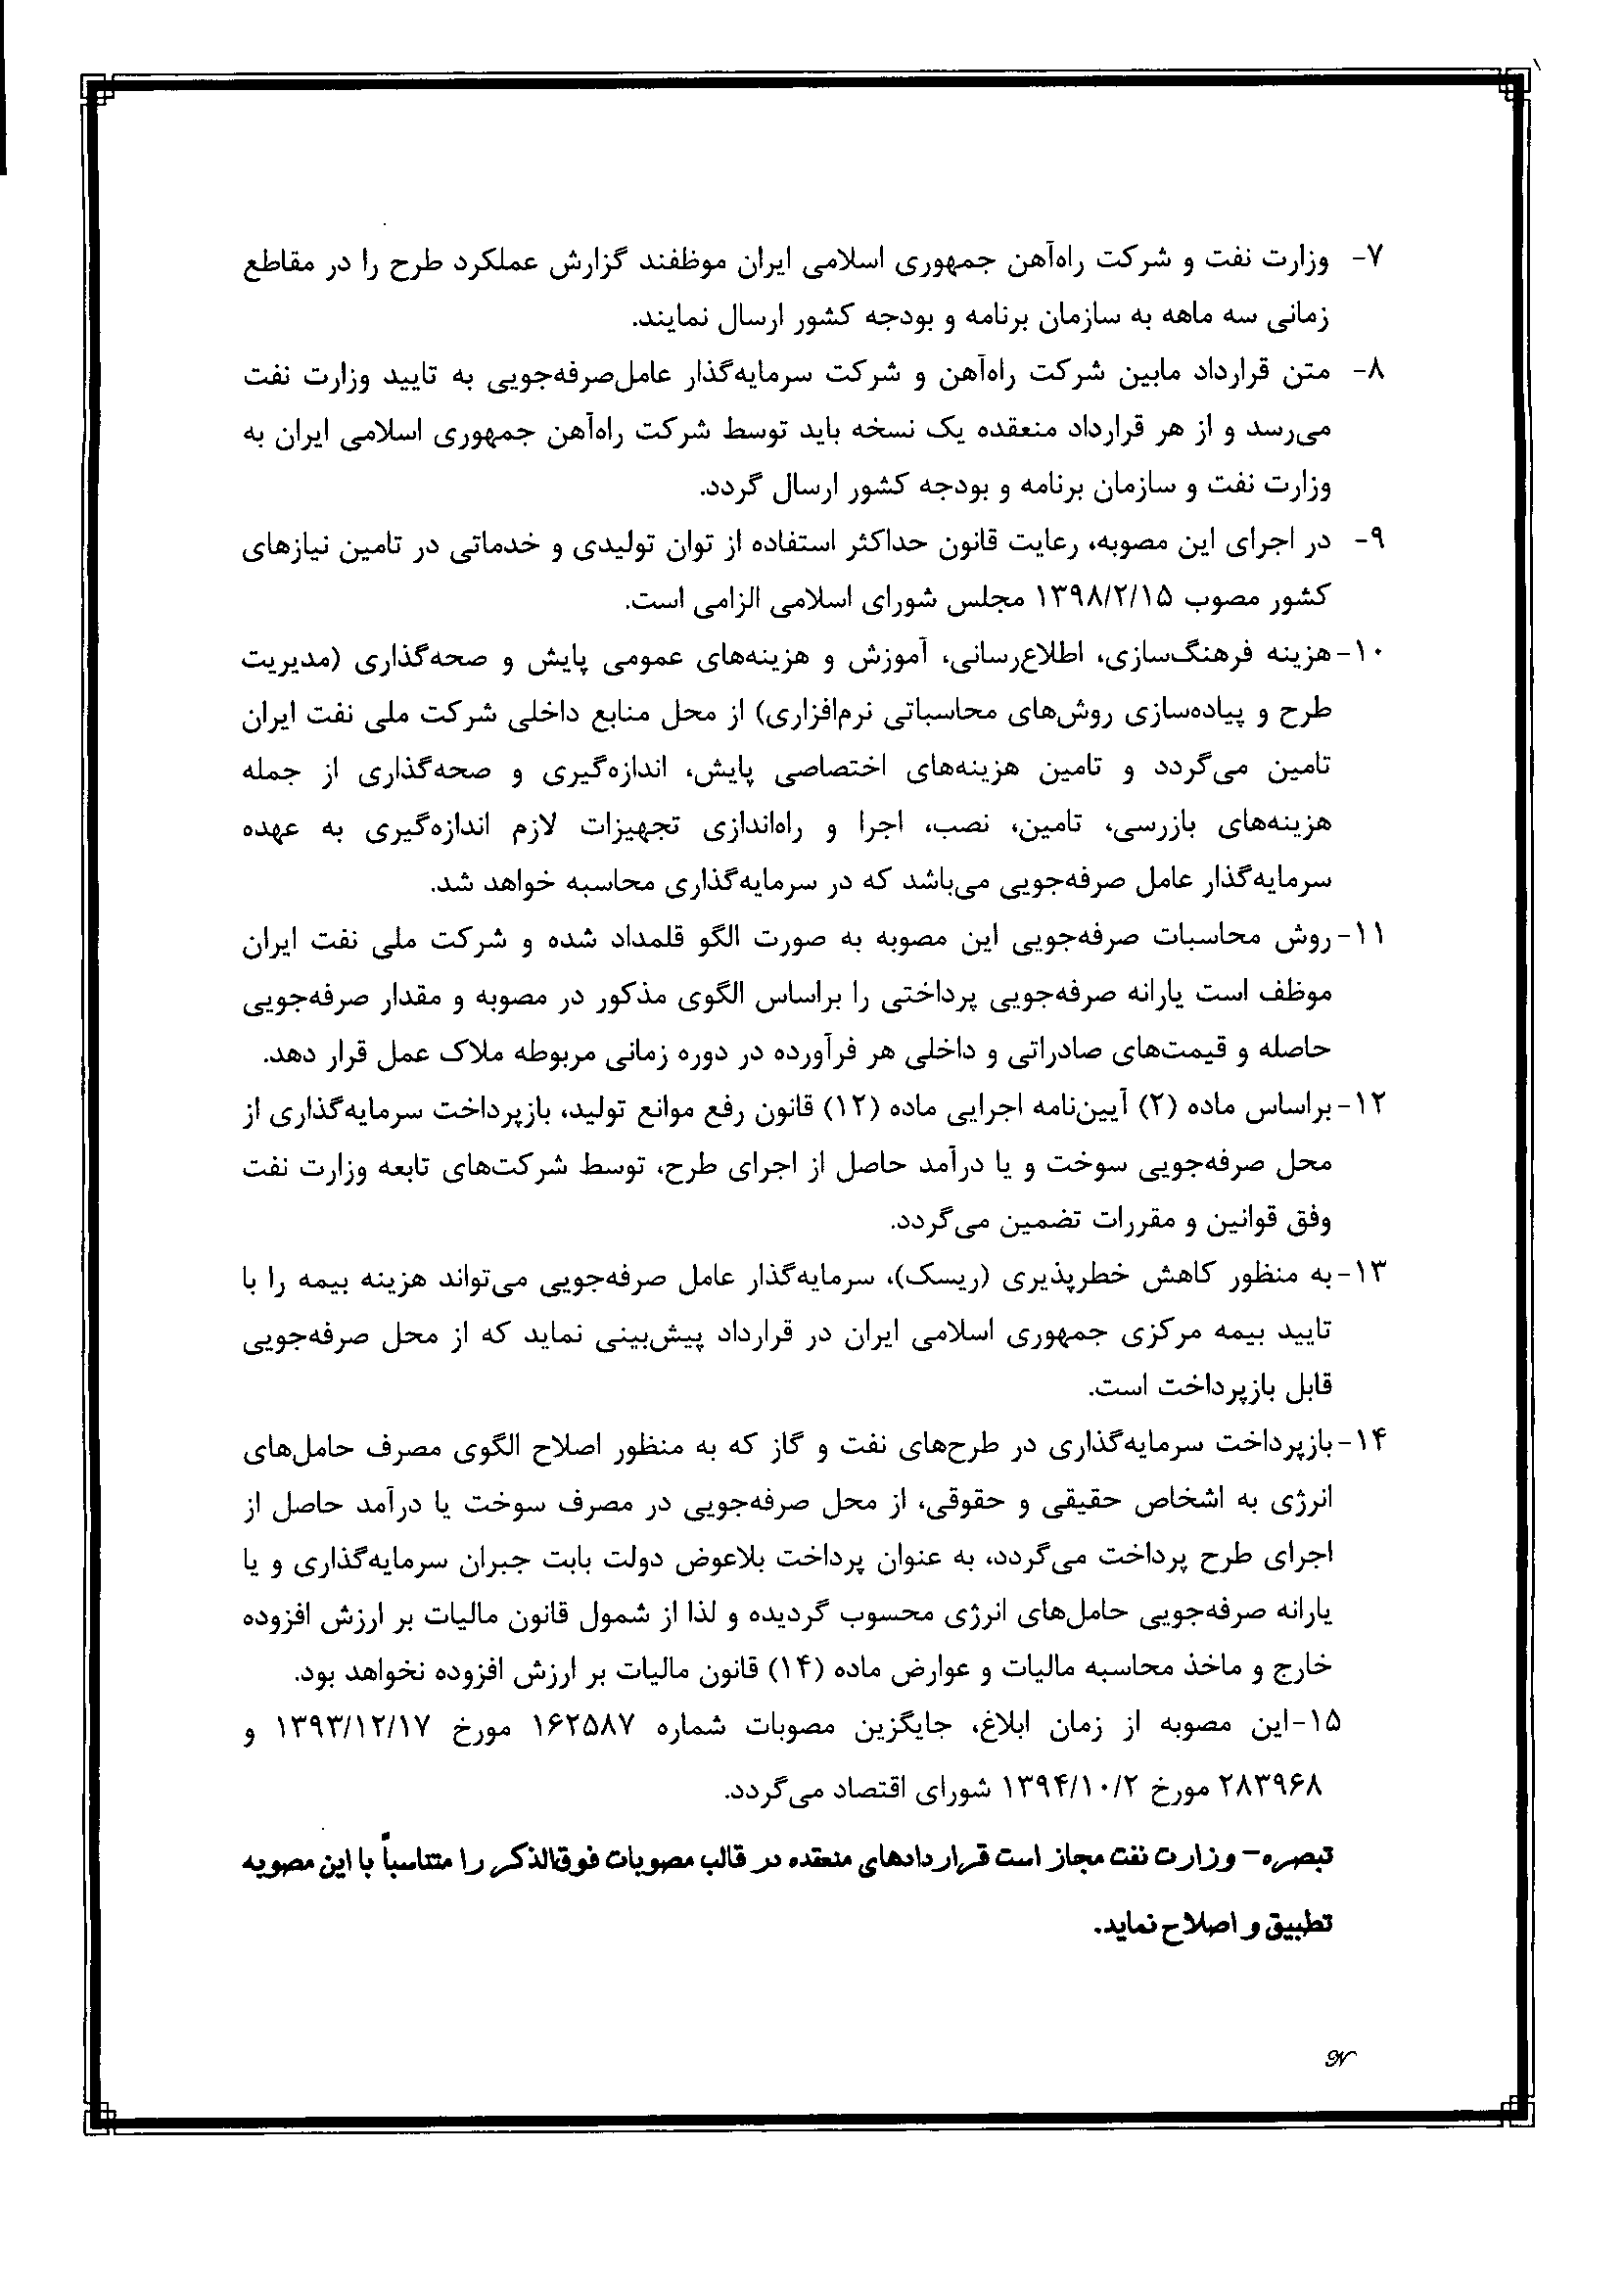 ۷- وزارت نفت و شرکت راه‌آهن جمهوری اسلامی ایران موظفند گزارش عملکرد طرح را در مقاطع
زمانی سه ماهه به سازمان برنامه و بودجه کشور ارسال نمایند.
۸- متن قرارداد مابین شرکت راه‌آهن و شرکت سرمایه‌گذار عامل‌صرفه‌جویی به تایید وزارت نفت
می‌رسد و از هر قرارداد منعقده یک نسخه باید توسط شرکت راه‌آهن جمهوری اسلامی ایران به
وزارت نفت و سازمان برنامه و بودجه کشور ارسال گردد.
۹- در اجرای این مصوبه، رعایت قانون حداکثر استفاده از توان تولیدی و خدماتی در تامین نیازهای
کشور مصوب ۱۳۹۸/۲/۱۵ مجلس شورای اسلامی الزامی است.
۱۰- هزینه فرهنگ‌سازی، اطلاع‌رسانی، آموزش و هزینه‌های عمومی پایش و صحه‌گذاری (مدیریت
طرح و پیاده‌سازی روش‌های محاسباتی نرم‌افزاری) از محل منابع داخلی شرکت ملی نفت ایران
تامین می‌گردد و تامین هزینه‌های اختصاصی پایش، اندازه‌گیری و صحه‌گذاری از جمله
هزینه‌های بازرسی، تامین، نصب، اجرا و راه‌اندازی تجهیزات لازم اندازه‌گیری به عهده
سرمایه‌گذار عامل صرفه‌جویی می‌باشد که در سرمایه‌گذاری محاسبه خواهد شد.
۱۱- روش محاسبات صرفه‌جویی این مصوبه به صورت الگو قلمداد شده و شرکت ملی نفت ایران
موظف است یارانه صرفه‌جویی پرداختی را براساس الگوی مذکور در مصوبه و مقدار صرفه‌جویی
حاصله و قیمت‌های صادراتی و داخلی هر فرآورده در دوره زمانی مربوطه ملاک عمل قرار دهد.
۱۲- براساس ماده (۲) آیین‌نامه اجرایی ماده (۱۲) قانون رفع موانع تولید، بازپرداخت سرمایه‌گذاری از
محل صرفه‌جویی سوخت و یا درآمد حاصل از اجرای طرح، توسط شرکت‌های تابعه وزارت نفت
وفق قوانین و مقررات تضمین می‌گردد.
۱۳- به منظور کاهش خطرپذیری (ریسک)، سرمایه‌گذار عامل صرفه‌جویی می‌تواند هزینه بیمه را با
تایید بیمه مرکزی جمهوری اسلامی ایران در قرارداد پیش‌بینی نماید که از محل صرفه‌جویی
قابل بازپرداخت است.
۱۴- بازپرداخت سرمایه‌گذاری در طرح‌های نفت و گاز که به منظور اصلاح الگوی مصرف حامل‌های
انرژی به اشخاص حقیقی و حقوقی، از محل صرفه‌جویی در مصرف سوخت یا درآمد حاصل از
اجرای طرح پرداخت می‌گردد، به عنوان پرداخت بلاعوض دولت بابت جبران سرمایه‌گذاری و یا
یارانه صرفه‌جویی حامل‌های انرژی محسوب گردیده و لذا از شمول قانون مالیات بر ارزش افزوده
خارج و ماخذ محاسبه مالیات و عوارض ماده (۱۴) قانون مالیات بر ارزش افزوده نخواهد بود.
۱۵- این مصوبه از زمان ابلاغ، جایگزین مصوبات شماره ۱۶۲۵۸۷ مورخ ۱۳۹۳/۱۲/۱۷ و
۲۸۳۹۶۸ مورخ ۱۳۹۴/۱۰/۲ شورای اقتصاد می‌گردد.
تبصره- وزارت نفت مجاز است قراردادهای منعقده در قالب مصوبات فوق‌الذکر را متناسباً با این مصوبه
تطبیق و اصلاح نماید.